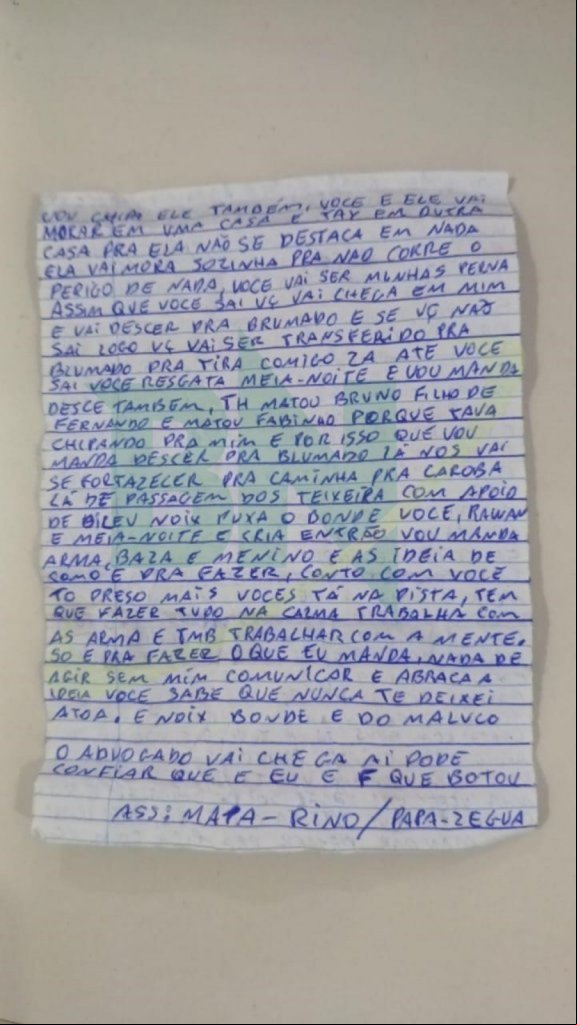 VOU CHIPA ELE TAMBÉM, VOCE E ELE VAI
MORAR EM UMA CASA E TAY EM OUTRA
CASA PRA ELA NÃO SE DESTACA EM NADA
ELA VAI MORA SOZINHA PRA NÃO CORRE O
PERIGO DE NADA, VOCE VAI SER MINHAS PERNA
ASSIM QUE VOCE SAI VÇ VAI CHEGA EM MIM
E VAI DESCER PRA BRUMADO E SE VÇ NÃO
SAI LOGO VÇ VAI SER TRANSFERIDO PRA
BLUMADO PRA TIRA COMIGO LA ATE VOCE
SAI VOCE RESGATA MEIA-NOITE E VOU MANDA
DESCE TAMBEM, TH MATOU BRUNO FILHO DE
FERNANDO E MATOU FABINHO PORQUE TAVA
CHIPANDO PRA MIM E POR ISSO QUE VOU
MANDA DESCER PRA BLUMADO LÁ NOS VAI
SE FORTAZECER PRA CAMINHA PRA CAROBA
LÁ DE PASSAGEM DOS TEIXEIRA COM APOIO
DE BILEU NOIX PUXA O BONDE VOCE, RAWAN
E MEIA-NOITE E CRIA ENTRÃO VOU MANDA
ARMA, BAZA E MENINO E AS IDEIA DE
COMO E PRA FAZER, CONTO COM VOCE
TO PRESO MAIS VOCES TÁ NA PISTA, TEM
QUE FAZER TUDO NA CALMA TRABALHA COM
AS ARMA E TMB TRABALHAR COM A MENTE.
SO E PRA FAZER O QUE EU MANDA, NADA DE
AGIR SEM MIM COMUNICAR E ABRAÇA A
IDEIA VOCE SABE QUE NUNCA TE DEIXEI
ATOA. E NOIX BONDE E DO MALUCO
O ADVOGADO VAI CHEGA AI PODE
CONFIAR QUE E EU E F QUE BOTOU
ASS: MAPA-RINO/PAPA-ZEGUA